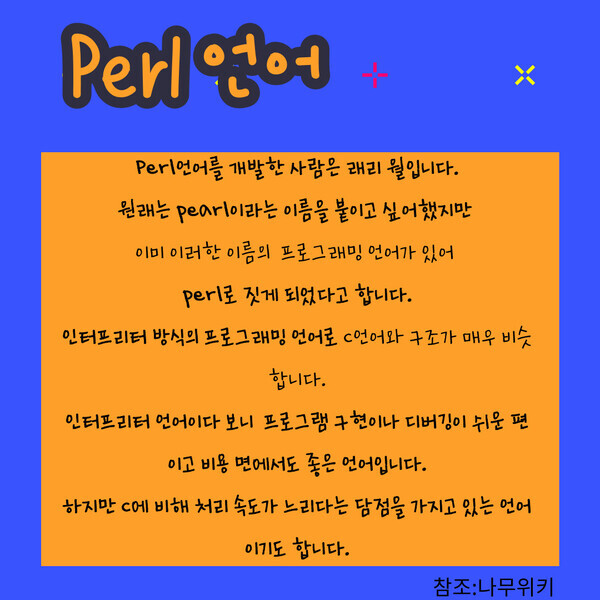 Perl 언어
Perl언어를 개발한 사람은 래리 월입니다.
원래는 pearl이라는 이름을 붙이고 싶어했지만
이미 이러한 이름의 프로그래밍 언어가 있어
perl로 짓게 되었다고 합니다.
인터프리터 방식의 프로그래밍 언어로 C언어와 구조가 매우 비슷
합니다.
인터프리터 언어이다 보니 프로그램 구현이나 디버깅이 쉬운 편
이고 비용 면에서도 좋은 언어입니다.
하지만 C에 비해 처리 속도가 느리다는 담점을 가지고 있는 언어
이기도 합니다.
참조:나무위키